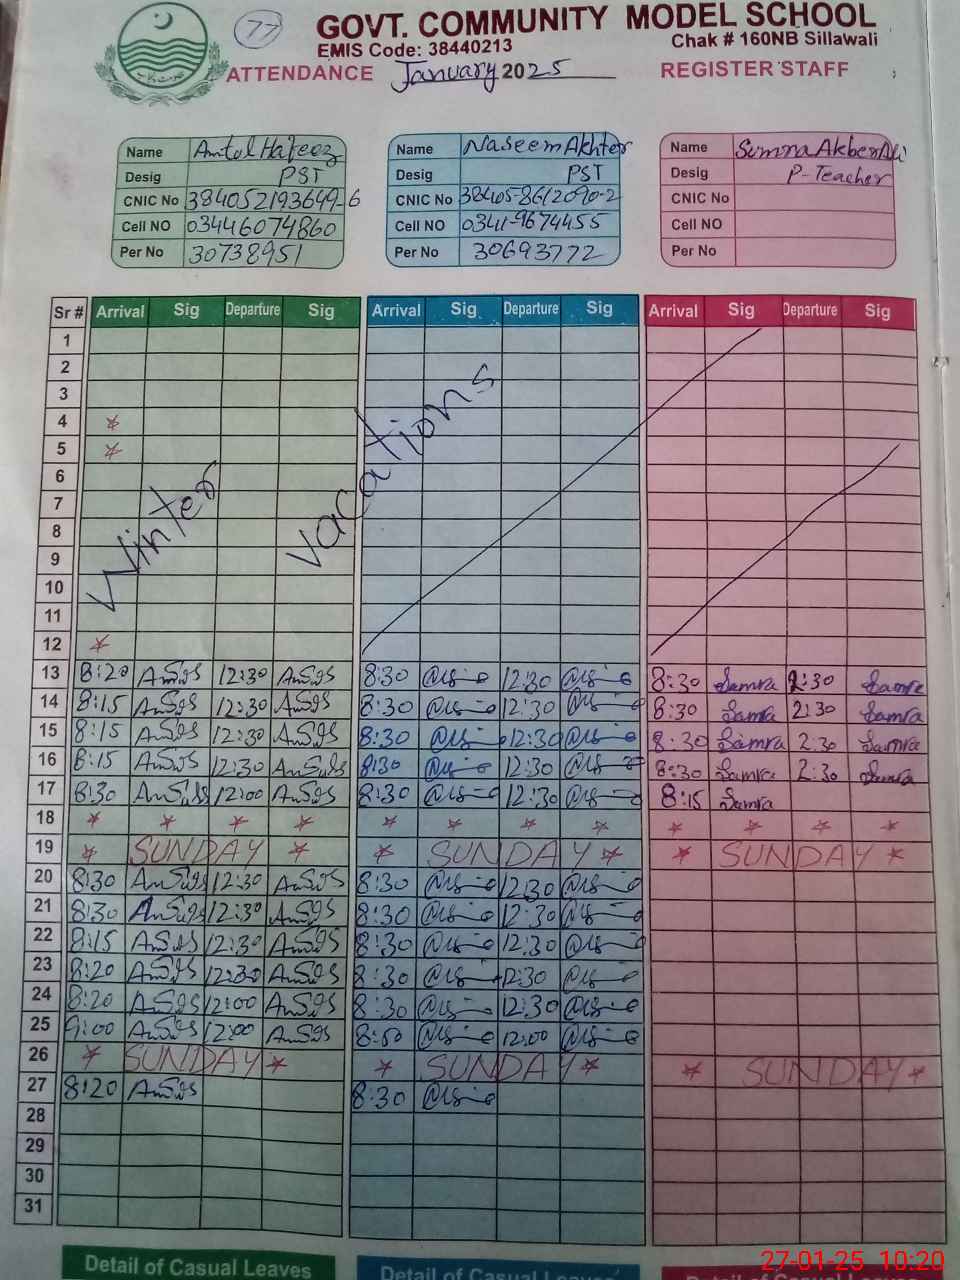 77
GOVT. COMMUNITY MODEL SCHOOL
EMIS Code: 38440213 Chak # 160NB Sillawali
ATTENDANCE January 2025 REGISTER STAFF
Name Amtul Hafeez Name Naseem Akhter Name Sumra Akber Ali
Desig PST Desig PST Desig P-Teacher
CNIC No 384052193649-6 CNIC No 38405-8612090-2 CNIC No
Cell NO 03446074860 Cell NO 0341-9674455 Cell NO
Per No 30738951 Per No 30693772 Per No
Sr # Arrival Sig Departure Sig Arrival Sig Departure Sig Arrival Sig Departure Sig
1
2
3
4 *
5 *
6
7
8
9
10
11
12 *
Winter Vacations
13 8:20 12:30 8:30 12:30 8:30 Samra 2:30 Samra
14 8:15 12:30 8:30 12:30 8:30 Samra 2:30 Samra
15 8:15 12:30 8:30 12:30 8:30 Samra 2:30 Samra
16 8:15 12:30 8:30 12:30 8:30 Samra 2:30 Samra
17 8:30 12:00 8:30 12:30 8:15 Samra
18 * * * * * * * * * * * *
19 * SUNDAY * * SUNDAY * * SUNDAY *
20 8:30 12:30 8:30 12:30
21 8:30 12:30 8:30 12:30
22 8:15 12:30 8:30 12:30
23 8:20 12:30 8:30 12:30
24 8:20 12:00 8:30 12:30
25 9:00 12:00 8:50 12:00
26 * SUNDAY * * SUNDAY * * SUNDAY *
27 8:20 8:30
28
29
30
31
Detail of Casual Leaves Detail of Casual Leaves Detail of Casual
27-01-25 10:20